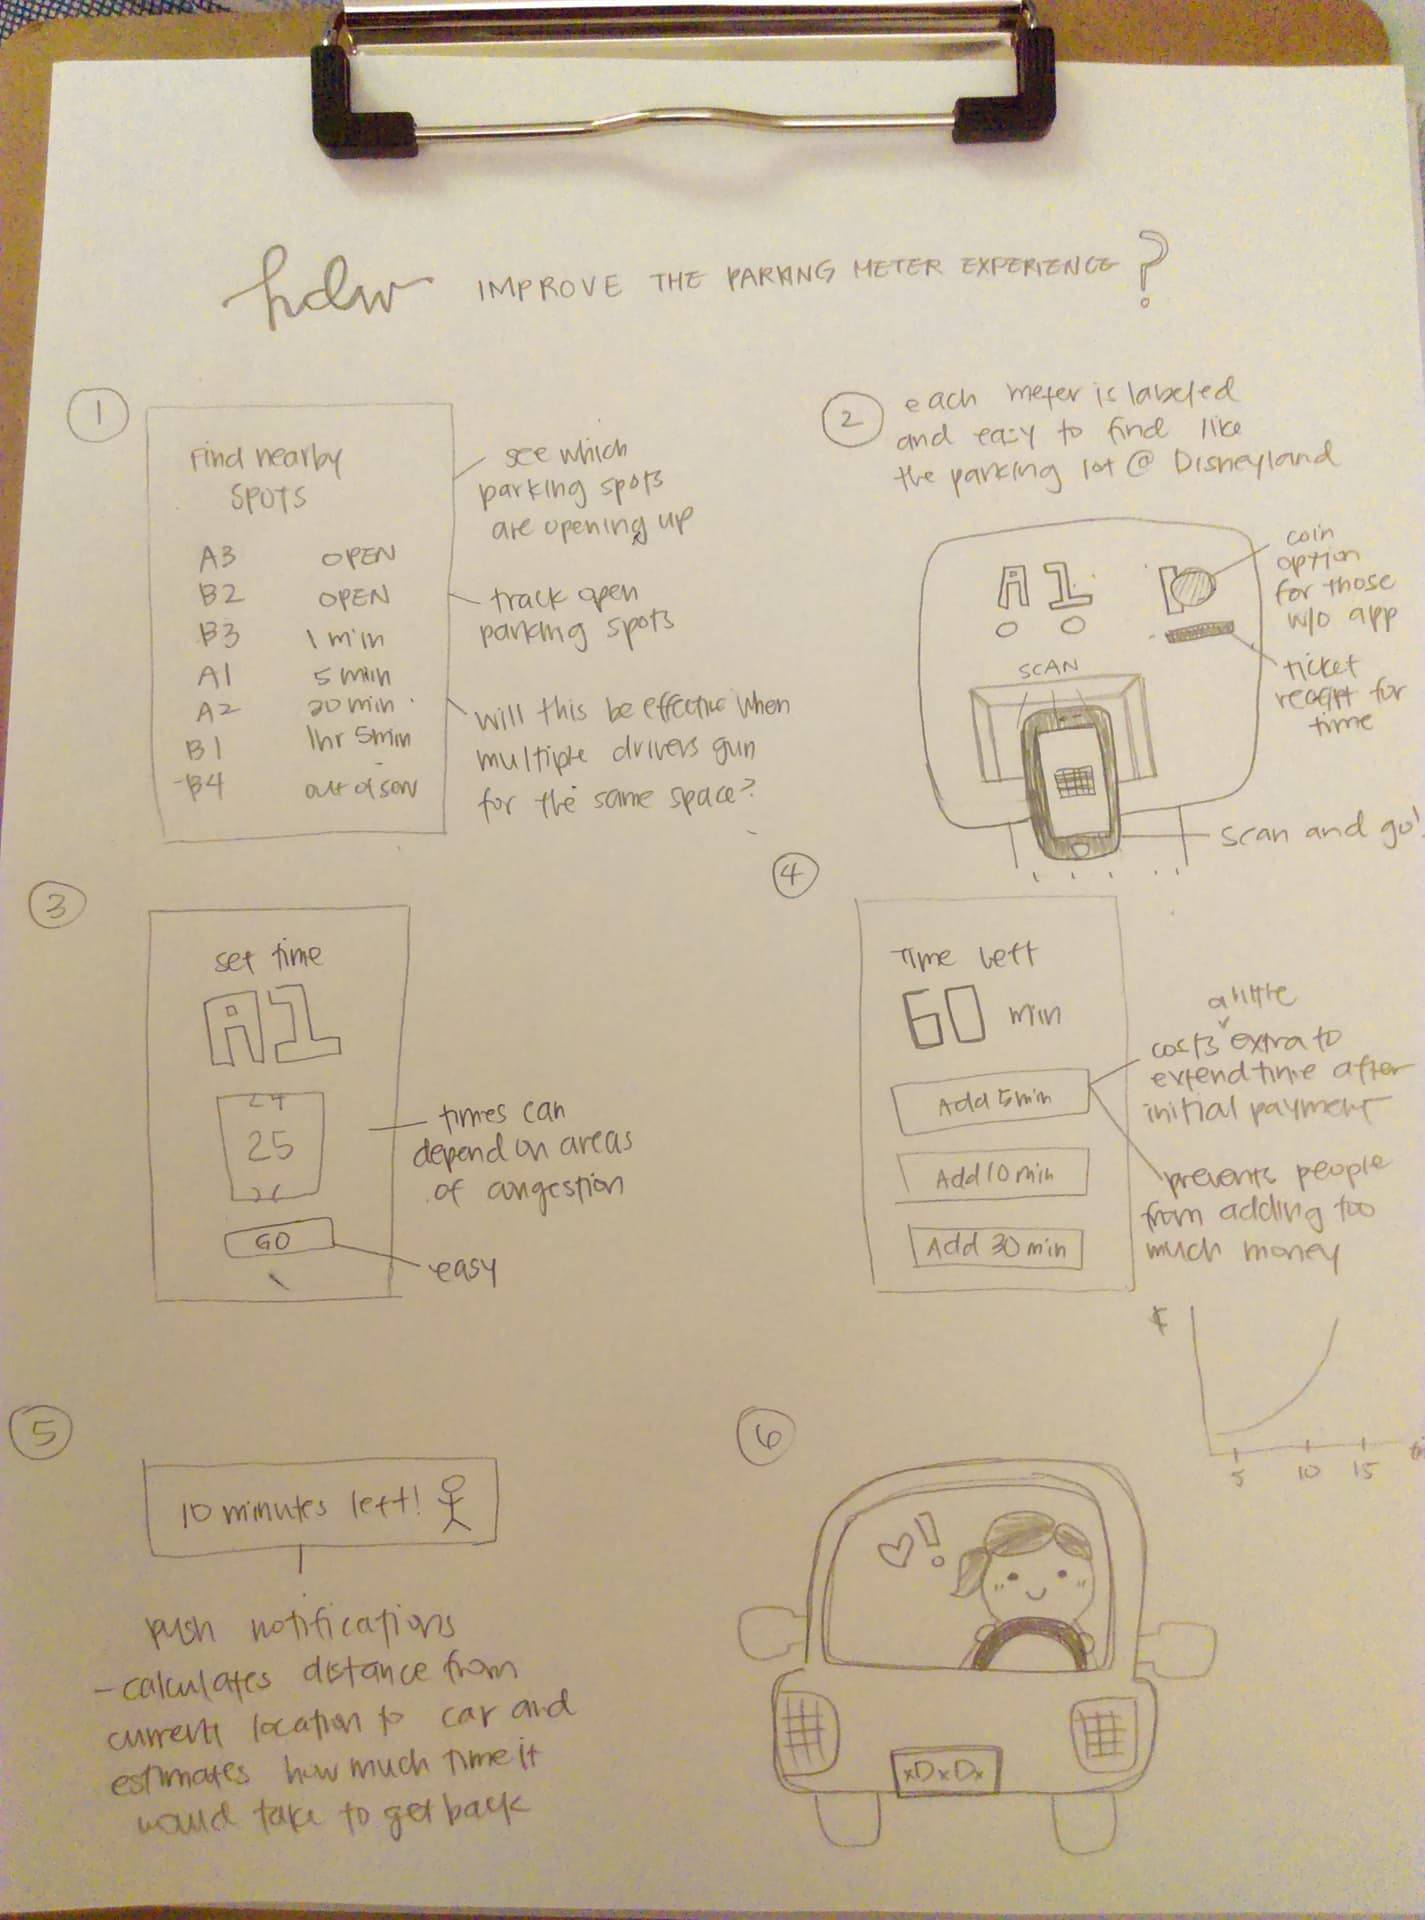 hdw IMPROVE THE PARKING METER EXPERIENCE?
1
Find nearby
SPOTS
A3 OPEN
B2 OPEN
B3 1 min
A1 5 min
A2 20 min
B1 1hr 5min
B4 out of serv
see which
parking spots
are opening up
track open
parking spots
will this be effective when
multiple drivers gun
for the same space?
2
each meter is labeled
and easy to find like
the parking lot @ Disneyland
A1
SCAN
coin
option
for those
w/o app
ticket
receipt for
time
scan and go!
3
set time
A1
24
25
26
GO
times can
depend on areas
of congestion
easy
4
Time left
60 min
Add 5min
Add 10 min
Add 30 min
a little
costs extra to
extend time after
initial payment
prevents people
from adding too
much money
5 10 15
5
10 minutes left!
push notifications
- calculates distance from
current location to car and
estimates how much time it
would take to get back
6
♡!
xDxDx